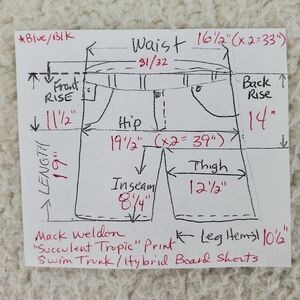 *Blue/Blk
16½" (x2=33")
Waist
31/32
Front
RISE
11½"
Back
Rise
14"
Hip
19½" (x2=39")
LENGTH
19"
Thigh
12½"
Inseam
8¼"
Leg Hems)
10½"
Mack Weldon
"Succulent Tropic" Print
Swim Trunk/Hybrid Board Shorts